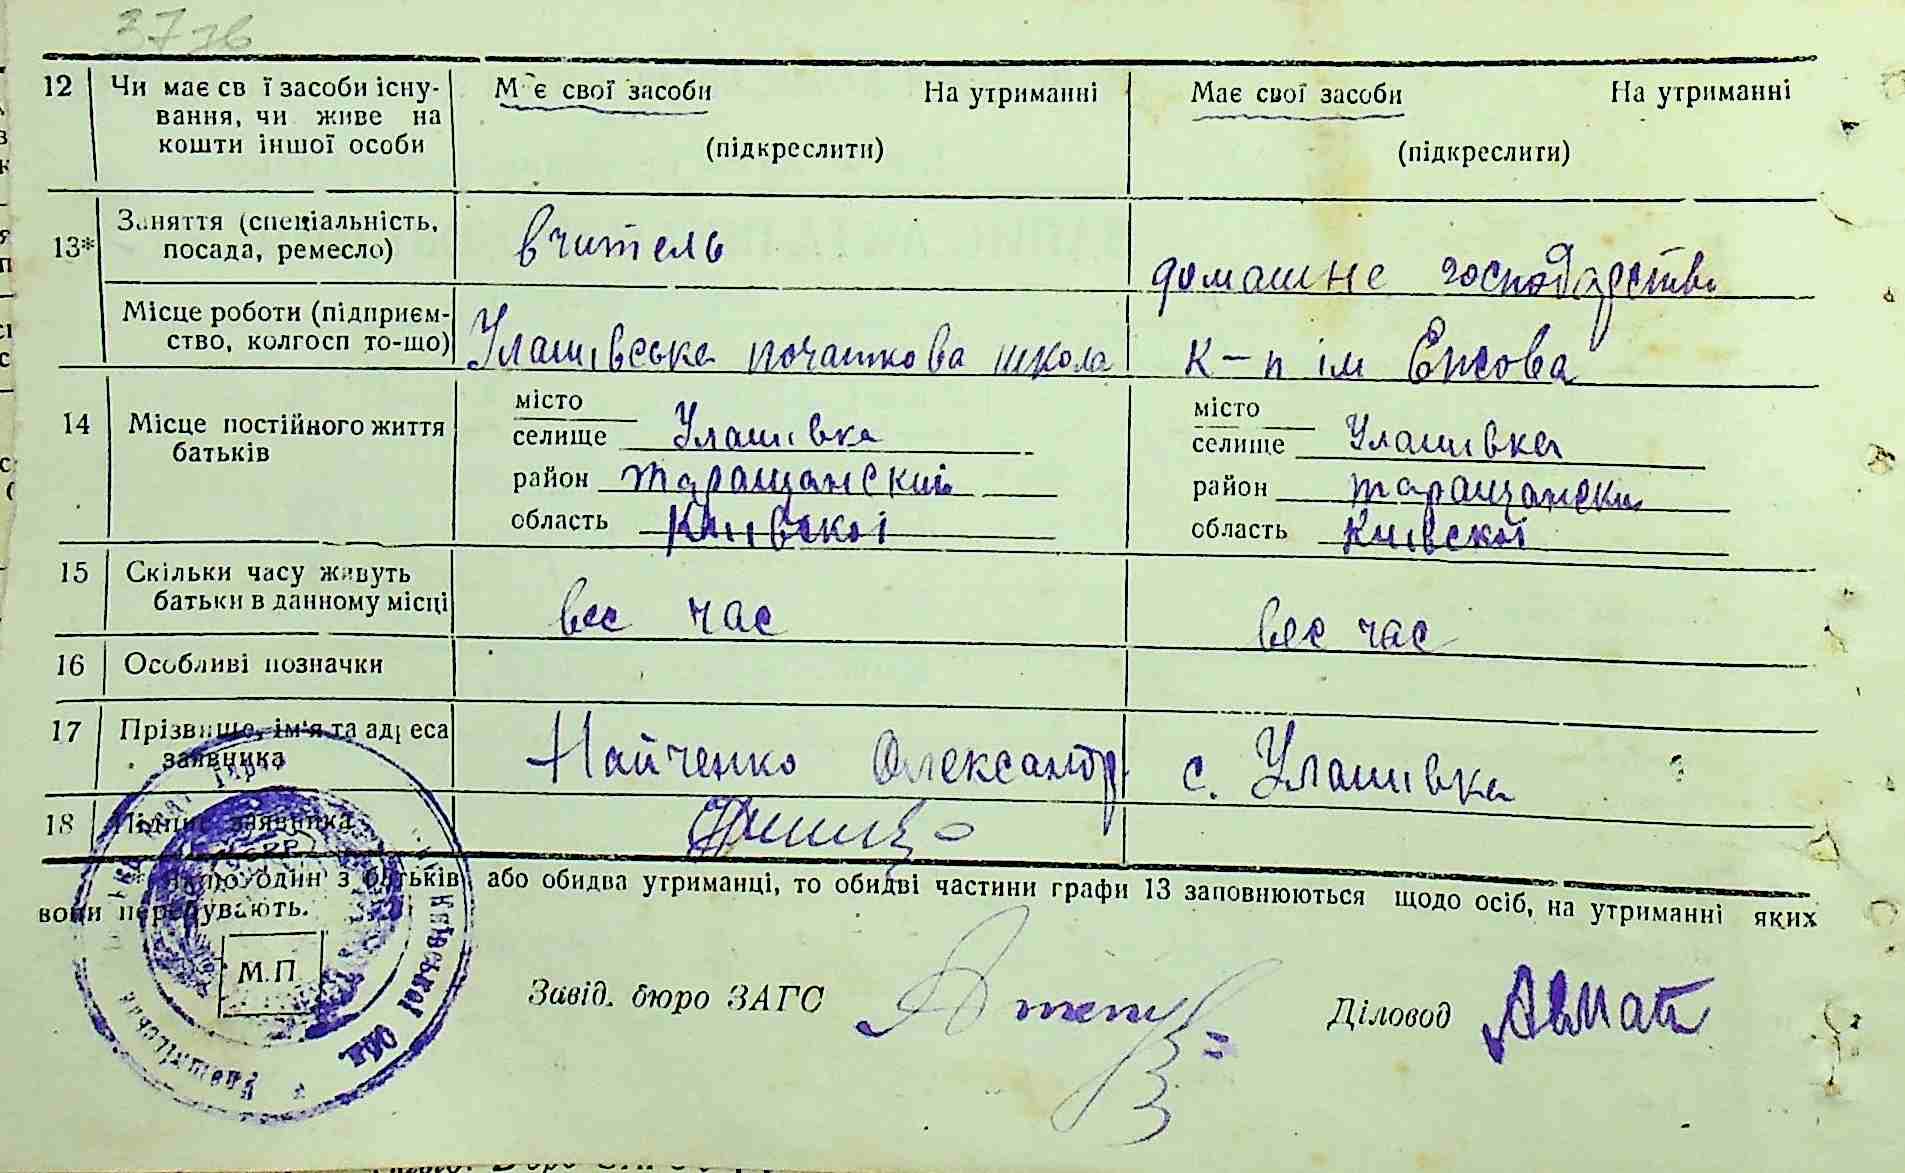 37 зв
12 Чи має св ї засоби існу- М є свої засоби На утриманні Має свої засоби На утриманні
вання, чи живе на
кошти іншої особи (підкреслити) (підкреслити)
13* Заняття (спеціальність, вчитель домашне господарство
посада, ремесло)
Місце роботи (підприєм- Улашівська початкова школа к-п ім Єжова
ство, колгосп то-що)
14 Місце постійного життя місто місто
батьків селище Улашівка селище Улашівка
район таращанский район таращански
область Київскої область Київскої
15 Скільки часу живуть вес час вес час
батьки в данному місці
16 Особливі позначки
17 Прізвище, ім'я та адреса Найченко Олександр с. Улашівка
заявника
18 Підпис заявника
* Якщо один з батьків або обидва утриманці, то обидві частини графи 13 заповнюються щодо осіб, на утриманні яких
вони перебувають.
М.П.
Київської обл.
Завід. бюро ЗАГС Діловод